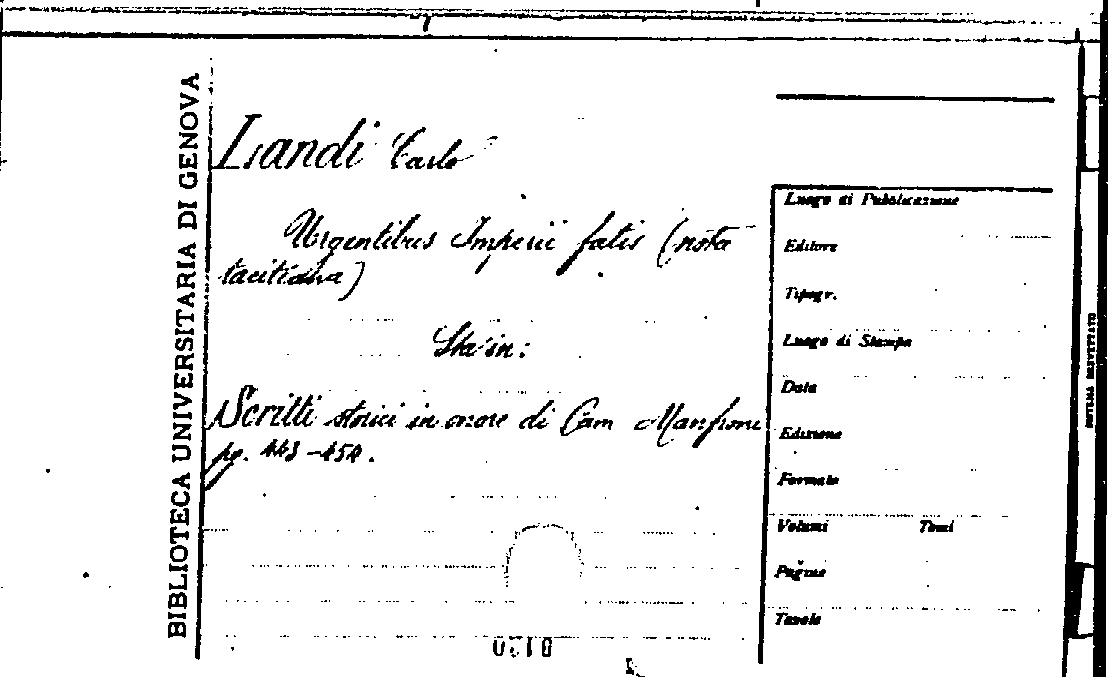 BIBLIOTECA UNIVERSITARIA DI GENOVA
Landi Carlo
Urgentibus Imperii fatis (nota
tacitiana)
Sta in:
Scritti storici in onore di Cam Manfroni
pg. 443-454.
Luogo di Pubblicazione
Editore
Tipogr.
Luogo di Stampa
Data
Edizione
Formato
Volumi Tomi
Pagine
Tavole